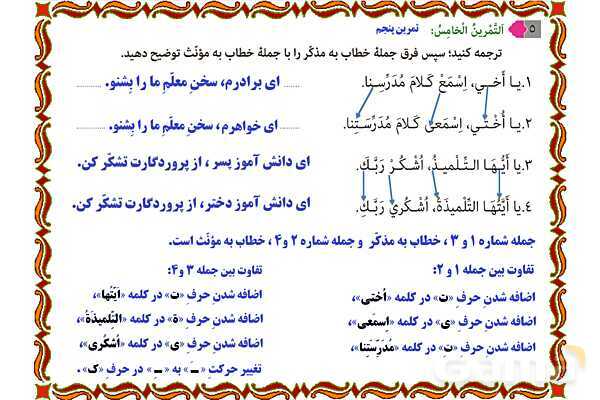 ٥ اَلتَّمْرينُ الْخامِسُ: تمرین پنجم
ترجمه کنید؛ سپس فرق جملهٔ خطاب به مذکّر را با جملهٔ خطاب به مؤنّث توضیح دهید.
١.يـا أَخـي، اِسْمَعْ كَلامَ مُدَرِّسِـنا. ...... ای برادرم، سخنِ معلّمِ ما را بِشنو. ......
٢.يـا أُخْتـي، اِسْمَعي كَلامَ مُدَرِّسَـتِنا. ...... ای خواهرم، سخنِ معلّمِ ما را بِشنو. ......
٣.يا أَيُّـهَا التِّلْميـذُ، اُشْكُـرْ رَبَّـكَ. ای دانش آموز پسر ، از پروردگارت تشکّر کن.
٤.يا أَيَّتُهَا التِّلْميذَةُ، اُشْكُري رَبَّـكِ. ای دانش آموز دختر، از پروردگارت تشکّر کن.
جمله شماره ۱ و ۳ ، خطاب به مذکّر و جمله شماره ۲ و ۴ ، خطاب به مؤنّث است.
تفاوت بین جمله ۱ و ۲:
اضافه شدنِ حرفِ «ت» در کلمه «أختی»،
اضافه شدنِ حرفِ «ی» در کلمه «اسمَعی»،
اضافه شدنِ حرفِ «ت» در کلمه «مُدَرِّسَتِنا»،
تفاوت بین جمله ۳ و ۴:
اضافه شدنِ حرفِ «ت» در کلمه «اَیَّتُها»،
اضافه شدنِ حرفِ «ة» در کلمه «التّلمیذَةُ»،
اضافه شدنِ حرفِ «ی» در کلمه «اُشکُری»،
تغییر حرکتِ «ـَ» به «ـِ» در حرفِ «ک» .